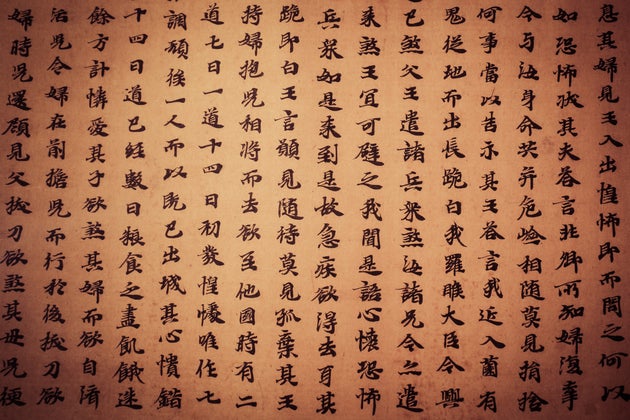 息其婦見王入出惶怖即而問之何以
如恐怖狀其夫荅言非卿所知婦復牽
今与汝身命共并危嶮相随莫見捐捨
何事當以告示其王荅言我近入薗有
鬼従地而出長跪白我羅睺大臣今興
已煞父王遣諸兵衆煞汝諸兄今亦遣
来煞王宜可避之我聞是語心懐恐怖
兵衆如是来到是故急疾欲得去耳其
跪即白王言願見随侍莫見孤棄其王
持婦抱兒相將而去欲至他國時有二
道七日一道十四日初發惶懅唯作七
調頓俟一人而以既已出城其心憒錯
十四日道已経數日粮食乏盡飢餓迷
餘方計憐愛其子欲煞其婦而欲自濟
活兒令婦在前擔兒而行於後拔刀欲
婦時兒還顧見父拔刀欲煞其母兒便